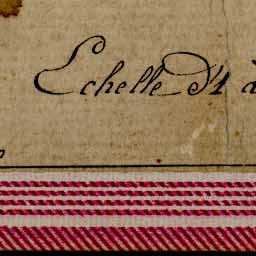 Echelle D'1 à